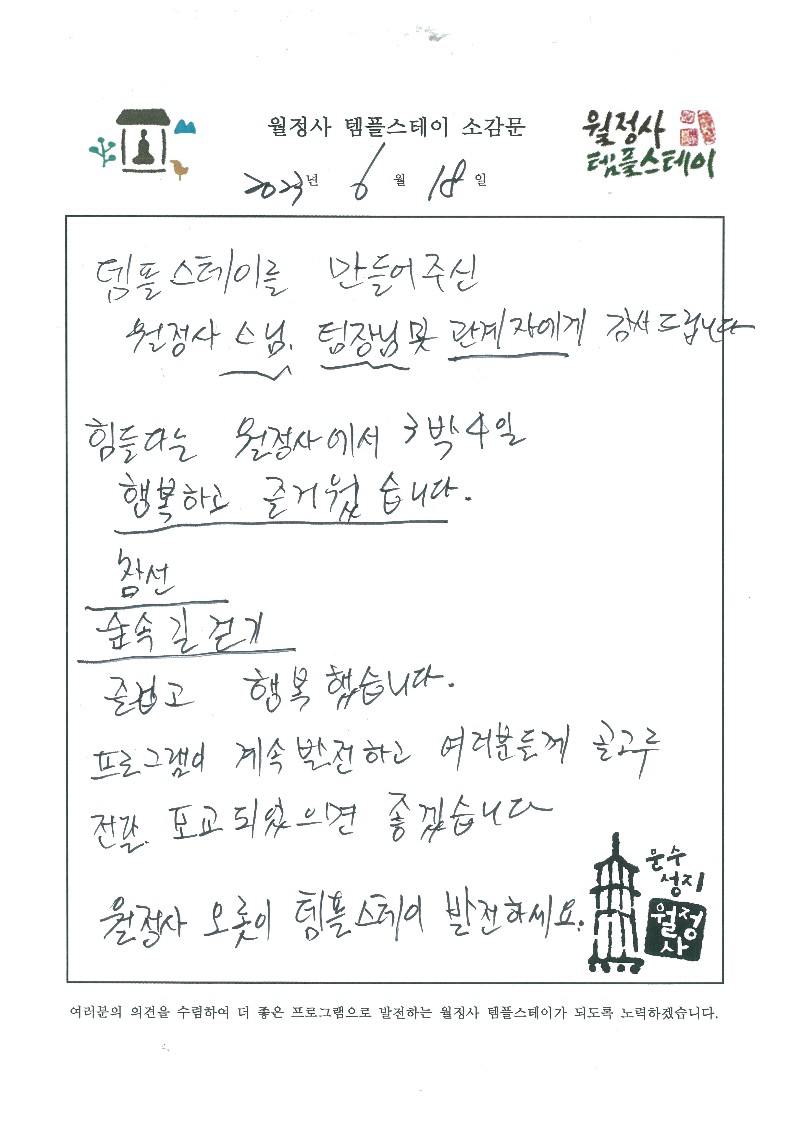 월정사 템플스테이 소감문
월정사
템플스테이
2023년 6월 18일
템플스테이를 만들어주신
월정사 스님, 팀장님 및 관계자에게 감사드립니다
힘들다는 월정사에서 3박4일
행복하고 즐거웠습니다.
참선
숲속 길 걷기
즐겁고 행복했습니다.
프로그램이 계속 발전하고 여러분들께 골고루
전달. 포교되었으면 좋겠습니다
월정사 오롯이 템플스테이 발전하세요.
문수
성지
월정
사
여러분의 의견을 수렴하여 더 좋은 프로그램으로 발전하는 월정사 템플스테이가 되도록 노력하겠습니다.